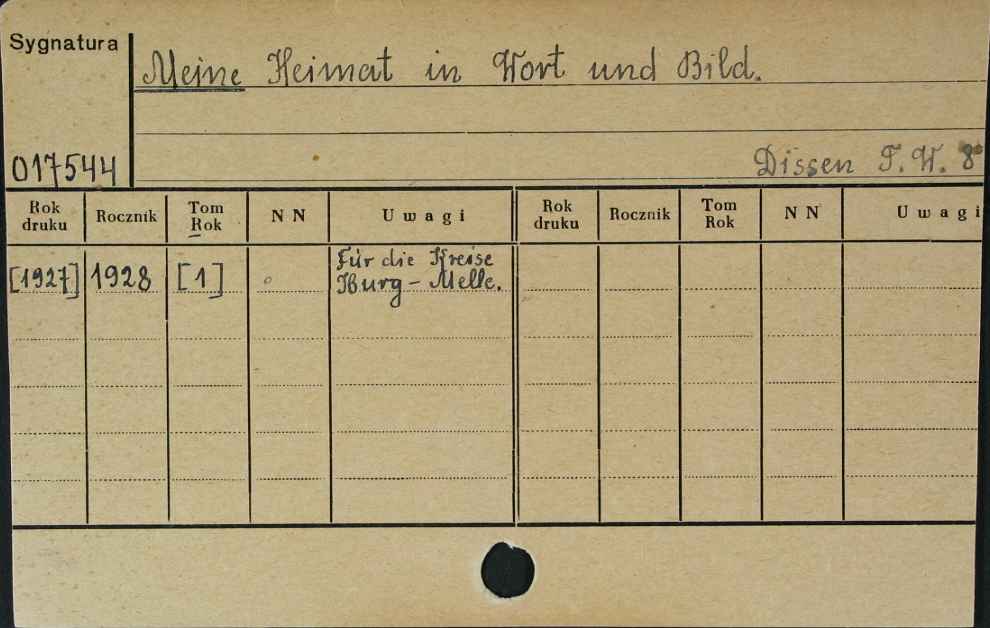 Sygnatura
Meine Heimat in Wort und Bild.
017544
Dissen T.W. 8°
Rok druku Rocznik Tom Rok N N Uwagi Rok druku Rocznik Tom Rok N N Uwagi
[1927] 1928 [1] Für die Kreise
Iburg - Melle.